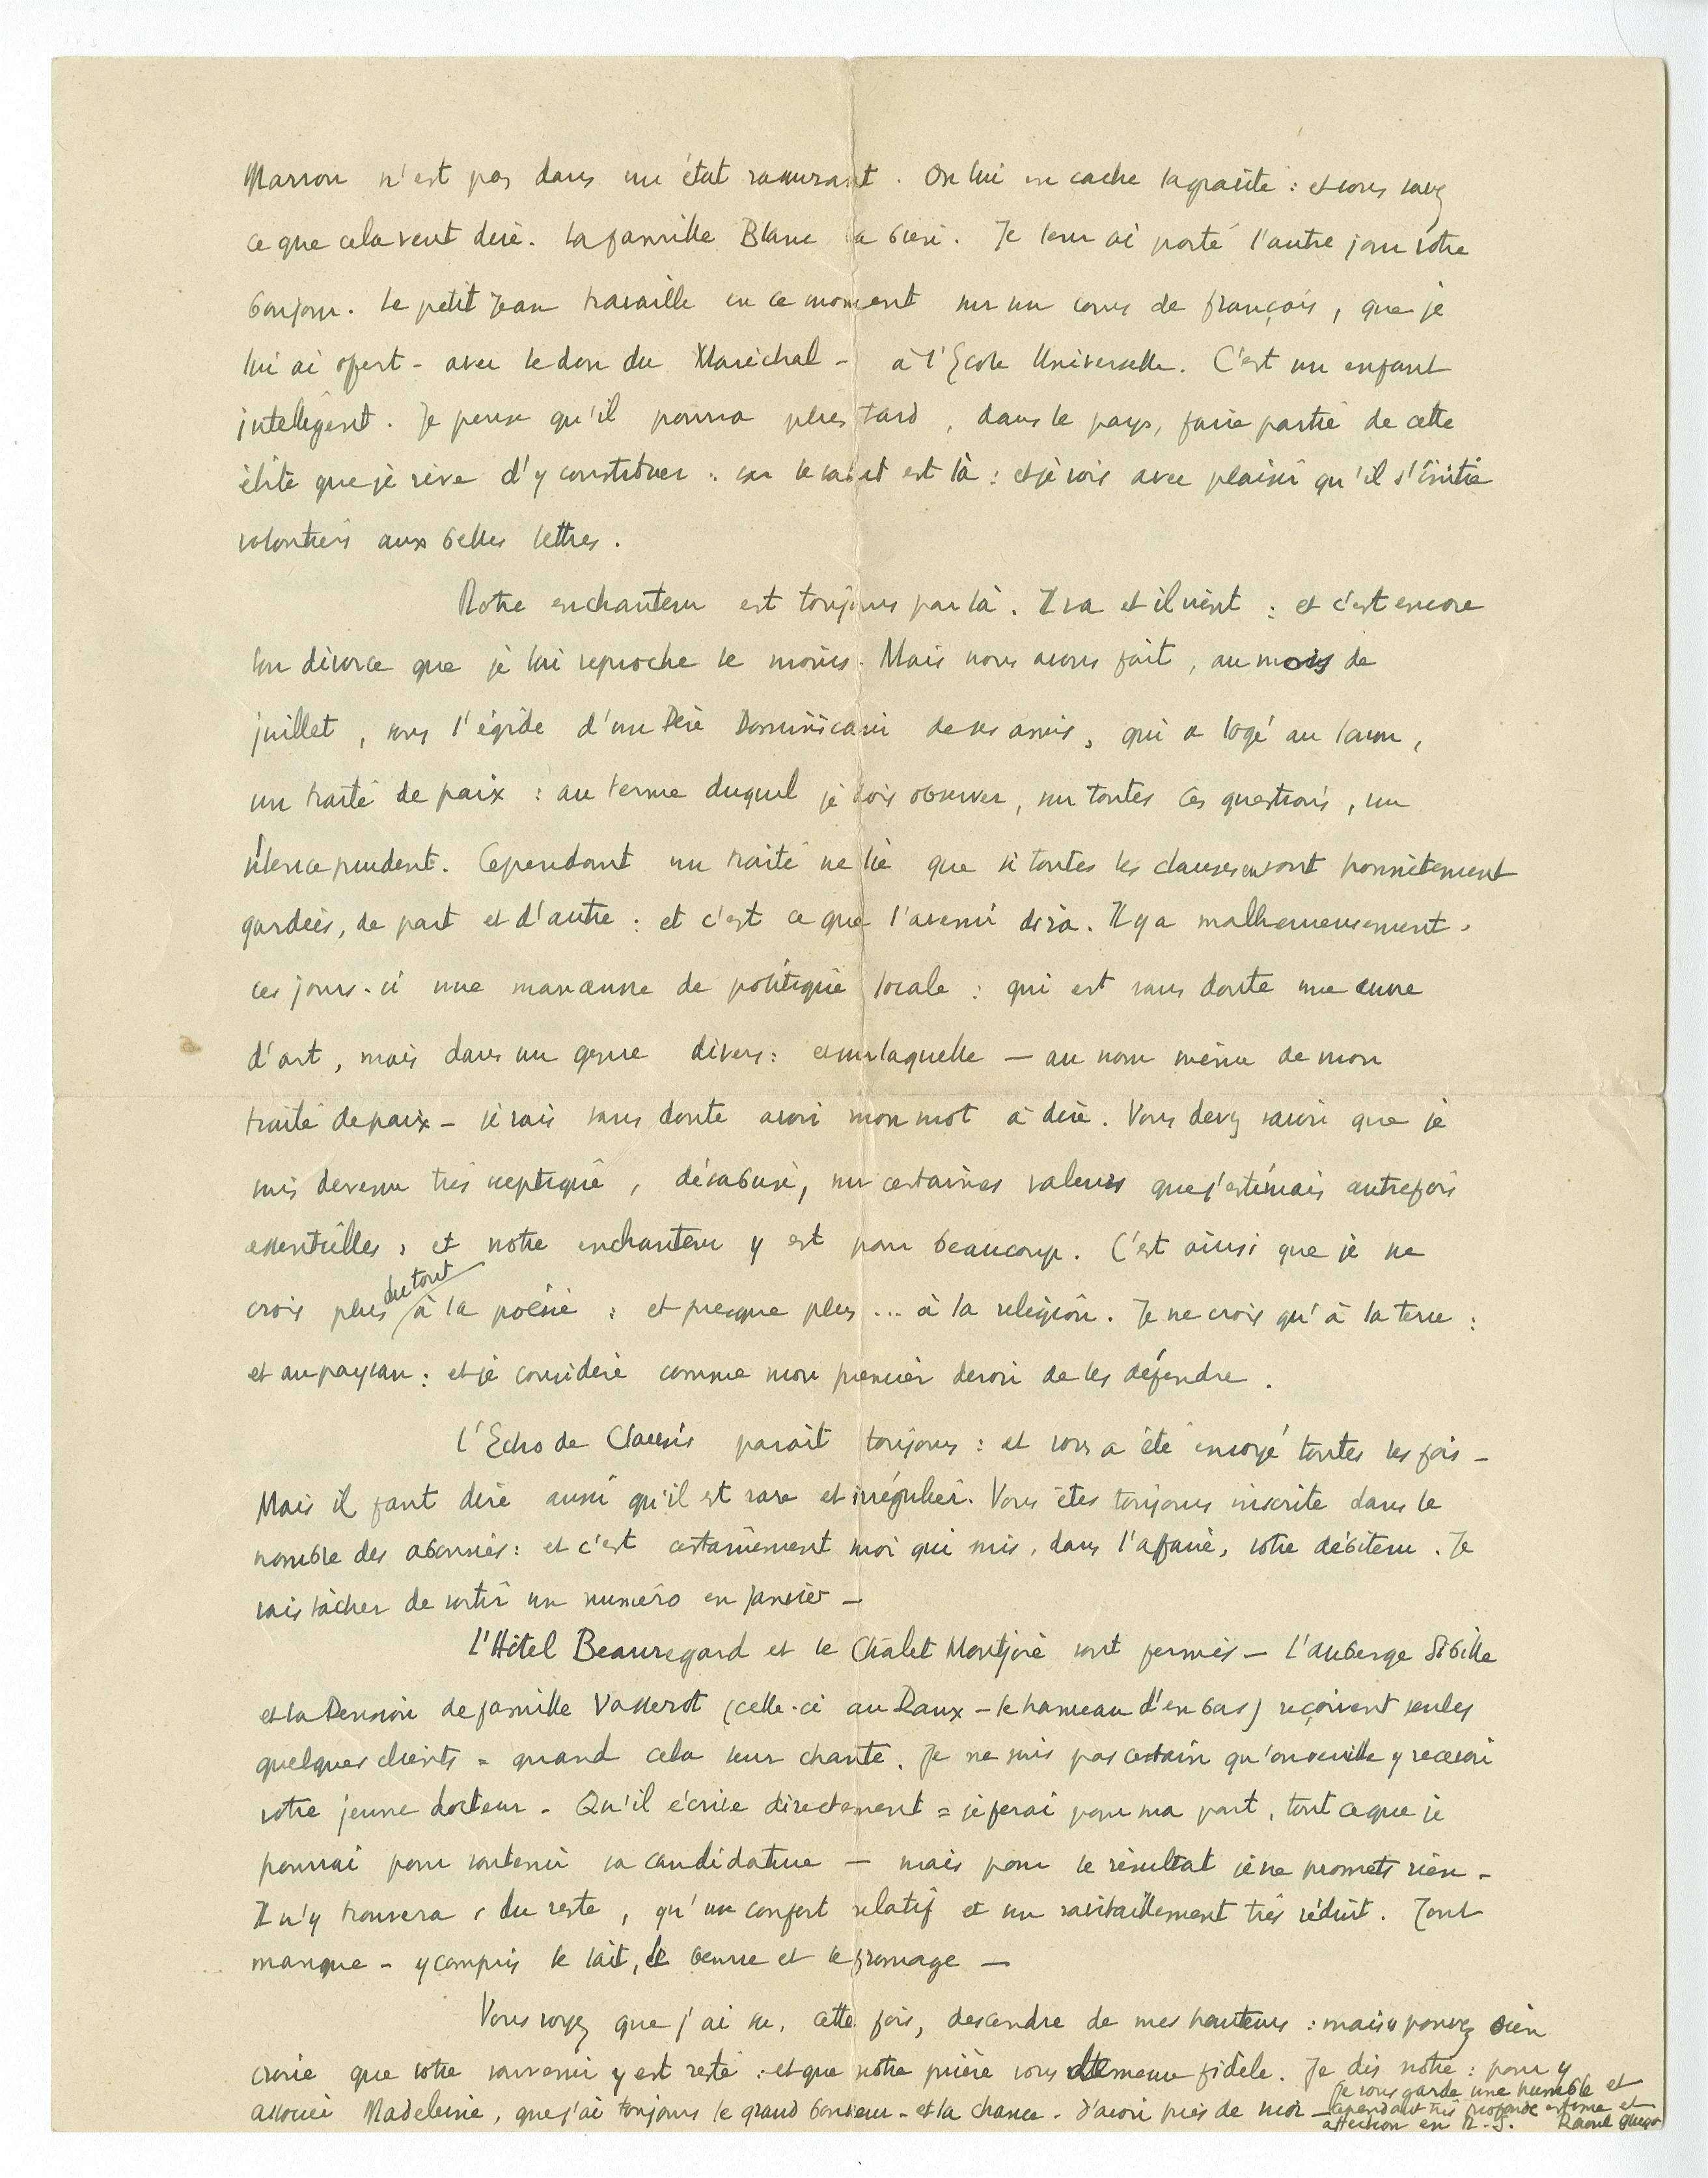 Marron n'est pas dans un état rassurant. On lui en cache la gravité : et vous savez
ce que cela veut dire. La famille Blanc va bien. Je leur ai porté l'autre jour votre
bonjour. Le petit Jean travaille en ce moment sur un cours de français, que je
lui ai ofert - avec le don du Maréchal - à l'Ecole Universelle. C'est un enfant
inteligent. Je pense qu'il pourra plus tard, dans le pays, faire partie de cette
élite que je rêve d'y constituer : car le salut est là : et je vois avec plaisir qu'il s'initie
volontiers aux belles lettres.
Notre enchanteur est toujours par là. Il va et il vient : et c'est encore
son divorce que je lui reproche le moins. Mais nous avons fait, au mois de
juillet, sous l'égide d'un Père Dominicain de ses amis, qui a logé au
un traité de paix : au terme duquel je dois observer, sur toutes ces questions, un
silence prudent. Cependant un traité ne lie que si toutes les clauses en sont honnêtement
gardées, de part et d'autre : et c'est ce que l'avenir dira. Il y a malheureusement,
ces jours-ci une manœuvre de politique locale : qui est sans doute une œuvre
d'art, mais dans un genre divers : et sur laquelle — au nom même de mon
traité de paix - je vais sans doute avoir mon mot à dire. Vous devez savoir que je
suis devenu très sceptique, désabusé, sur certaines valeurs que j'estimais autrefois
essentielles, et notre enchanteur y est pour beaucoup. C'est ainsi que je ne
crois plus du tout à la poésie : et presque plus ... à la religion. Je ne crois qu'à la terre :
et au paysan : et je considère comme mon premier devoir de les défendre.
L'Echo de Clausis paraît toujours : et vous a été envoyé toutes les fois -
Mais il faut dire aussi qu'il est rare et irrégulier. Vous êtes toujours inscrite dans le
nombre des abonnés : et c'est certainement moi qui suis, dans l'affaire, votre débiteur. Je
vais tâcher de sortir un numéro en Janvier -
L'Hôtel Beauregard et le Châlet Montjoie sont fermés - L'auberge Sibille
et la Pension de famille Vasserot (celle-ci au Raux - le hameau d'en bas) reçoivent seules
quelques clients = quand cela leur chante. Je ne suis pas certain qu'on veuille y recevoir
votre jeune docteur - Qu'il écrive directement = je ferai pour ma part, tout ce que je
pourrai pour soutenir sa candidature - mais pour le résultat je ne promets rien -
Il n'y trouvera, du reste, qu'un confort relatif et un ravitaillement très réduit. Tout
manque - y compris le lait, le beurre et le fromage -
Vous voyez que j'ai su, cette fois, descendre de mes hauteurs : mais pouvez bien
croire que votre souvenir y est resté : et que notre prière vous demeure fidèle. Je dis notre : pour y
associer Madeleine, que j'ai toujours le grand bonheur - et la chance - d'avoir près de moi -
Je vous garde une humble et
cependant très profonde estime et
affection en N.-S. Raoul